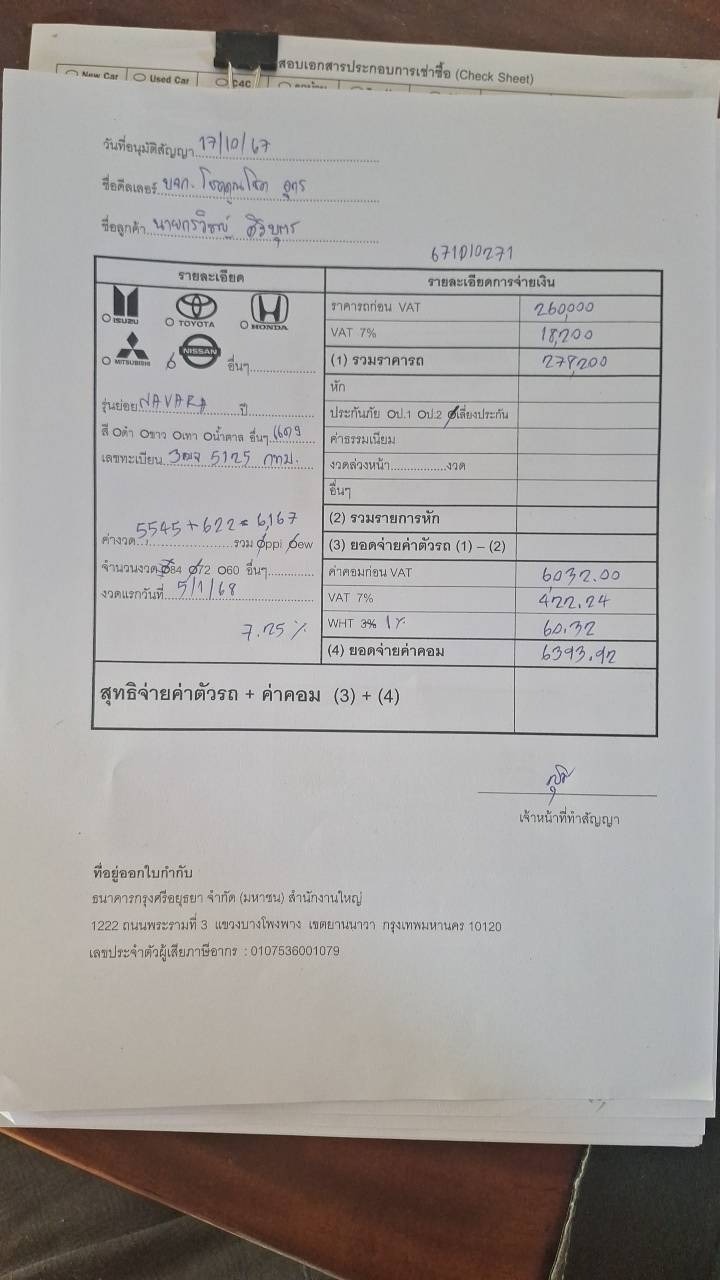 สอบเอกสารประกอบการเช่าซื้อ (Check Sheet)
New Car Used Car C4C
วันที่อนุมัติสัญญา 17/10/67
ชื่อดีลเลอร์ บจก.
ชื่อลูกค้า
671010271
รายละเอียด
รายละเอียดการจ่ายเงิน
ISUZU TOYOTA HONDA
MITSUBISHI NISSAN อื่นๆ
รุ่นย่อย NAVARA ปี
สี ดำ ขาว เทา น้ำตาล อื่นๆ
เลขทะเบียน 5125 กทม.
5545 + 622 = 6,167
ค่างวด รวม ppi ew
จำนวนงวด 84 72 60 อื่นๆ
งวดแรกวันที่ 5/1/68
7.25 %
ราคารถก่อน VAT 260,000
VAT 7% 18,200
(1) รวมราคารถ 278,200
หัก
ประกันภัย ป.1 ป.2 เลี่ยงประกัน
ค่าธรรมเนียม
งวดล่วงหน้า................งวด
อื่นๆ
(2) รวมรายการหัก
(3) ยอดจ่ายค่าตัวรถ (1) – (2)
ค่าคอมก่อน VAT 6,032.00
VAT 7% 422.24
WHT 3% 1% 60.32
(4) ยอดจ่ายค่าคอม 6393.92
สุทธิจ่ายค่าตัวรถ + ค่าคอม (3) + (4)
เจ้าหน้าที่ทำสัญญา
ที่อยู่ออกใบกำกับ
ธนาคารกรุงศรีอยุธยา จำกัด (มหาชน) สำนักงานใหญ่
1222 ถนนพระรามที่ 3 แขวงบางโพงพาง เขตยานนาวา กรุงเทพมหานคร 10120
เลขประจำตัวผู้เสียภาษีอากร : 0107536001079